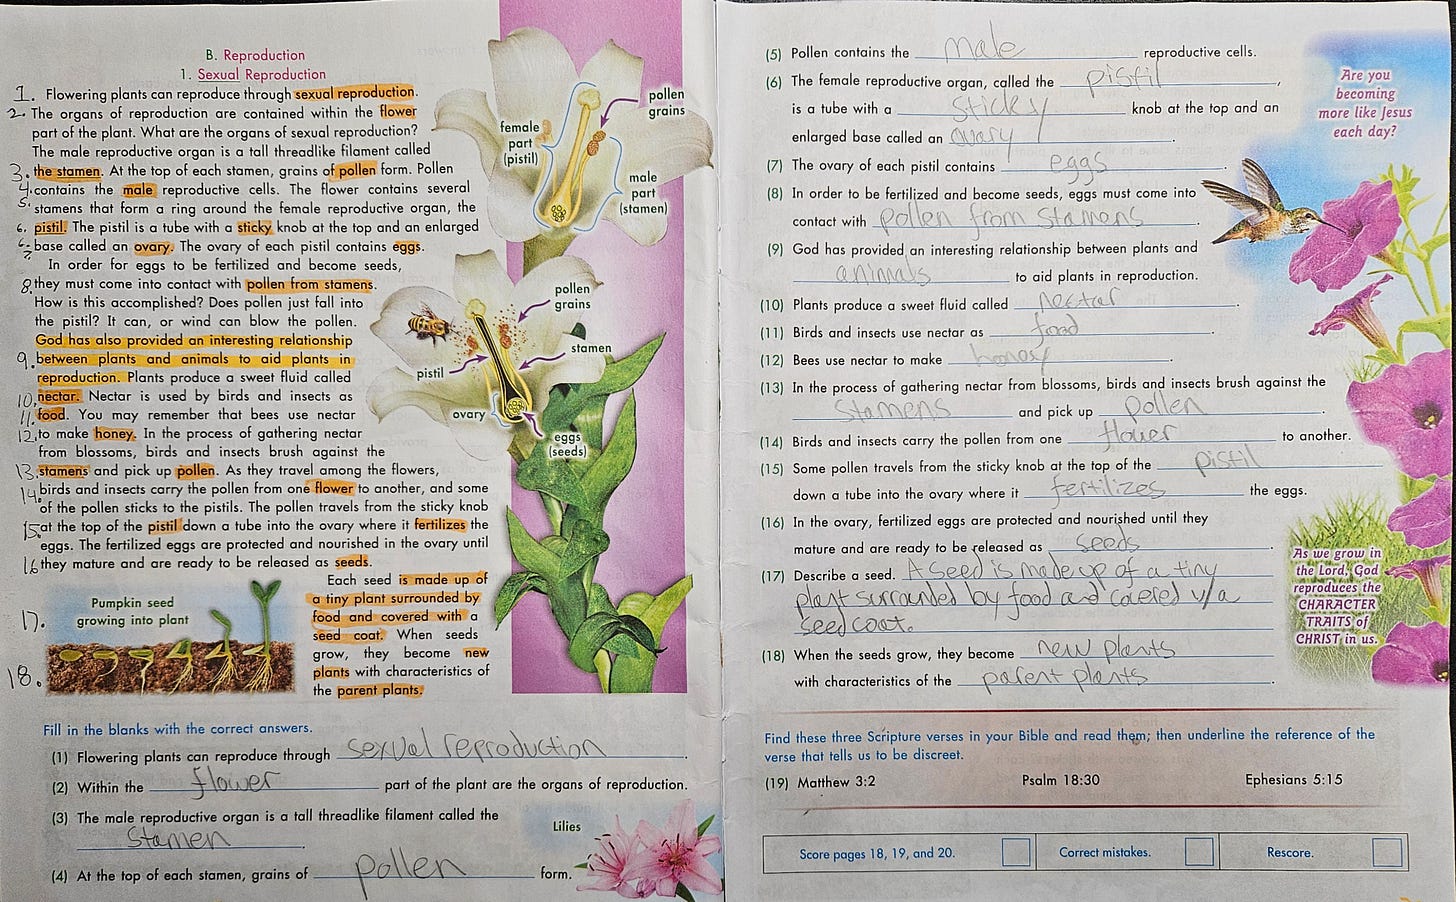 B. Reproduction
1. Sexual Reproduction
1. Flowering plants can reproduce through sexual reproduction.
2. The organs of reproduction are contained within the flower
part of the plant. What are the organs of sexual reproduction?
The male reproductive organ is a tall threadlike filament called
3. the stamen. At the top of each stamen, grains of pollen form. Pollen
4. contains the male reproductive cells. The flower contains several
5. stamens that form a ring around the female reproductive organ, the
6. pistil. The pistil is a tube with a sticky knob at the top and an enlarged
6. base called an ovary. The ovary of each pistil contains eggs.
7
In order for eggs to be fertilized and become seeds,
8. they must come into contact with pollen from stamens.
How is this accomplished? Does pollen just fall into
the pistil? It can, or wind can blow the pollen.
God has also provided an interesting relationship
9. between plants and animals to aid plants in
reproduction. Plants produce a sweet fluid called
10. nectar. Nectar is used by birds and insects as
11. food. You may remember that bees use nectar
12. to make honey. In the process of gathering nectar
from blossoms, birds and insects brush against the
13. stamens and pick up pollen. As they travel among the flowers,
14. birds and insects carry the pollen from one flower to another, and some
of the pollen sticks to the pistils. The pollen travels from the sticky knob
15. at the top of the pistil down a tube into the ovary where it fertilizes the
eggs. The fertilized eggs are protected and nourished in the ovary until
16 they mature and are ready to be released as seeds.
Each seed is made up of
a tiny plant surrounded by
food and covered with a
seed coat. When seeds
grow, they become new
plants with characteristics of
the parent plants.
17.
18.
Pumpkin seed
growing into plant
female
part
(pistil)
pollen
grains
male
part
(stamen)
pollen
grains
stamen
pistil
ovary
eggs
(seeds)
Fill in the blanks with the correct answers.
(1) Flowering plants can reproduce through sexual reproduction.
(2) Within the flower part of the plant are the organs of reproduction.
(3) The male reproductive organ is a tall threadlike filament called the
stamen.
(4) At the top of each stamen, grains of pollen form.
Lilies
(5) Pollen contains the male reproductive cells.
(6) The female reproductive organ, called the pistil,
is a tube with a sticky knob at the top and an
enlarged base called an ovary.
(7) The ovary of each pistil contains eggs.
(8) In order to be fertilized and become seeds, eggs must come into
contact with pollen from stamens.
(9) God has provided an interesting relationship between plants and
animals to aid plants in reproduction.
(10) Plants produce a sweet fluid called nectar.
(11) Birds and insects use nectar as food.
(12) Bees use nectar to make honey.
(13) In the process of gathering nectar from blossoms, birds and insects brush against the
stamens and pick up pollen.
(14) Birds and insects carry the pollen from one flower to another.
(15) Some pollen travels from the sticky knob at the top of the pistil
down a tube into the ovary where it fertilizes the eggs.
(16) In the ovary, fertilized eggs are protected and nourished until they
mature and are ready to be released as seeds.
(17) Describe a seed. A seed is made up of a tiny
plant surrounded by food and covered w/a
seed coat.
(18) When the seeds grow, they become new plants
with characteristics of the parent plants.
Are you
becoming
more like Jesus
each day?
As we grow in
the Lord, God
reproduces the
CHARACTER
TRAITS of
CHRIST in us.
Find these three Scripture verses in your Bible and read them; then underline the reference of the
verse that tells us to be discreet.
(19) Matthew 3:2 Psalm 18:30 Ephesians 5:15
Score pages 18, 19, and 20. Correct mistakes. Rescore.